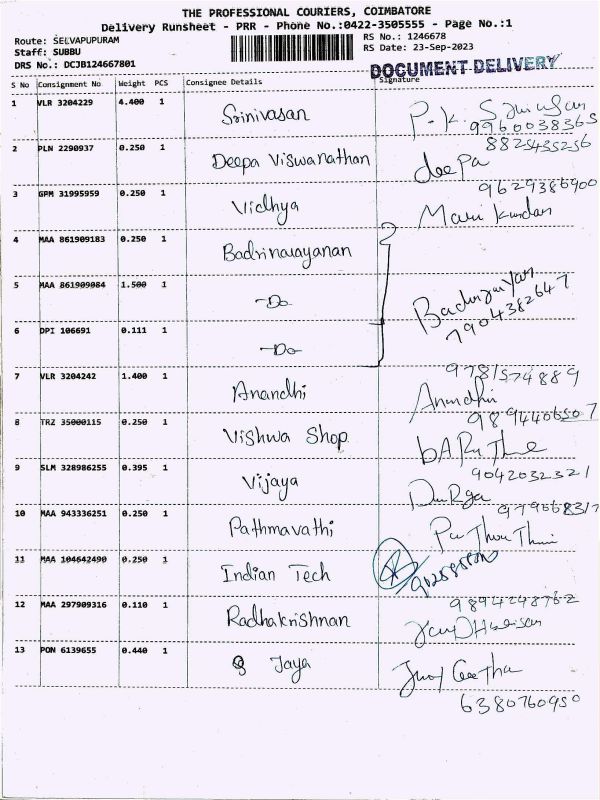 THE PROFESSIONAL COURIERS, COIMBATORE
Delivery Runsheet - PRR - Phone No.:0422-3505555 - Page No.:1
Route: SELVAPUPURAM
Staff: SUBBU
DRS No.: DCJB124667801
RS No.: 1246678
RS Date: 23-Sep-2023
DOCUMENT DELIVERY
S No Consignment No Weight PCS Consignee Details Signature
1 VLR 3204229 4.400 1 Srinivasan
9960038365
2 PLN 2290937 0.250 1 Deepa Viswanathan deepa
8825435256
3 GPM 31995959 0.250 1 Vidhya
9629386900
4 MAA 861909183 0.250 1 Badrinarayanan
5 MAA 861909084 1.500 1 -Do
7904382647
6 DPI 106691 0.111 1 -Do
7 VLR 3204242 1.400 1 Anandhi Anandhi
9781574889
8 TRZ 35000115 0.250 1 Vishwa Shop
9894406507
9 SLM 328986255 0.395 1 Vijaya DuRga
9042032321
10 MAA 943336251 0.250 1 Pathmavathi
11 MAA 104642490 0.250 1 Indian Tech
12 MAA 297909316 0.110 1 Radhakrishnan
9894248762
13 PON 6139655 0.440 1 Jaya
6380760950